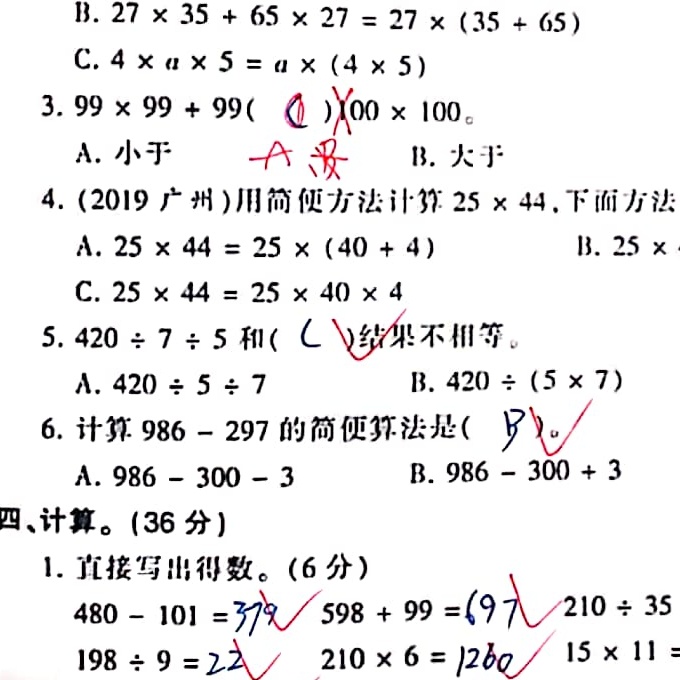 B. 27 × 35 + 65 × 27 = 27 × (35 + 65)
C. 4 × a × 5 = a × (4 × 5)
3. 99 × 99 + 99( )100 × 100。
A. 小于 A B. 大于
4. (2019 广州)用简便方法计算 25 × 44,下面方法
A. 25 × 44 = 25 × (40 + 4) B. 25 ×
C. 25 × 44 = 25 × 40 × 4
5. 420 ÷ 7 ÷ 5 和( C )结果不相等。
A. 420 ÷ 5 ÷ 7 B. 420 ÷ (5 × 7)
6. 计算 986 - 297 的简便算法是( B )。
A. 986 - 300 - 3 B. 986 - 300 + 3
四、计算。(36 分)
1. 直接写出得数。(6 分)
480 - 101 = 379 598 + 99 = 697 210 ÷ 35
198 ÷ 9 = 22 210 × 6 = 1260 15 × 11 =